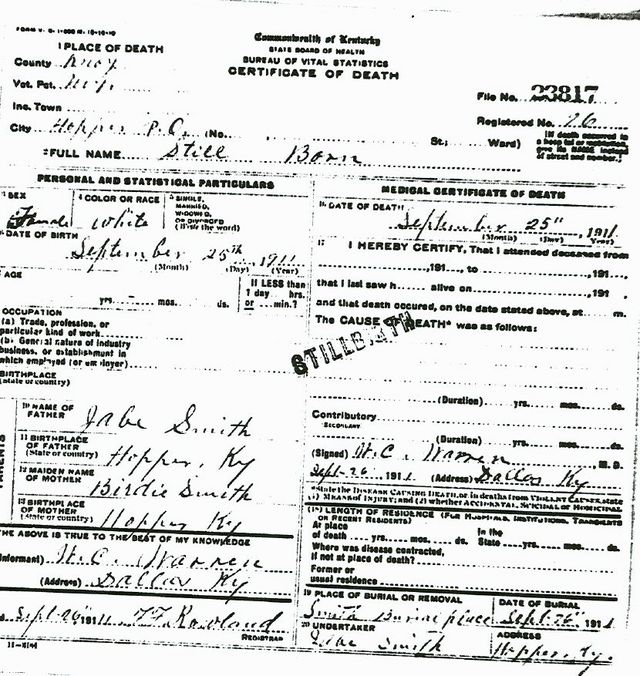 Commonwealth of Kentucky
STATE BOARD OF HEALTH
BUREAU OF VITAL STATISTICS
CERTIFICATE OF DEATH
1 PLACE OF DEATH
County Knox
Vot. Pct.
Inc. Town
City Hopper P.O. (No. St.; Ward)
File No. 23817
Registered No. 26
[If death occurred in a hospital or institution, give its NAME instead of street and number.]
2 FULL NAME Still Born
PERSONAL AND STATISTICAL PARTICULARS
3 SEX Female
4 COLOR OR RACE White
5 SINGLE, MARRIED, WIDOWED, OR DIVORCED (Write the word)
6 DATE OF BIRTH
September 25th, 1911
(Month) (Day) (Year)
7 AGE
yrs. - mos. ds.
If LESS than 1 day hrs. or min.?
OCCUPATION
(a) Trade, profession, or particular kind of work
(b) General nature of industry business, or establishment in which employed (or employer)
BIRTHPLACE
(State or country)
PARENTS
10 NAME OF FATHER Jabe Smith
11 BIRTHPLACE OF FATHER (State or country) Hopper, Ky
12 MAIDEN NAME OF MOTHER Birdie Smith
13 BIRTHPLACE OF MOTHER (State or country) Hopper Ky
THE ABOVE IS TRUE TO THE BEST OF MY KNOWLEDGE
(Informant) W. C. Warren
(Address) Dallas Ky
Sept-26" 1911
REGISTRAR
MEDICAL CERTIFICATE OF DEATH
16 DATE OF DEATH
September 25", 1911
(Month) (Day) (Year)
17 I HEREBY CERTIFY, That I attended deceased from
, 191 , to , 191 ,
that I last saw h alive on , 191 ,
and that death occured, on the date stated above, at m.
The CAUSE OF DEATH* was as follows:
STILLBIRTH
(Duration) yrs. mos. ds.
Contributory
SECONDARY
(Duration) yrs. mos. ds.
(Signed) W. C. Warren, M. D.
Sept-26, 1911 (Address) Dallas Ky
*State the DISEASE CAUSING DEATH, or, in deaths from VIOLENT CAUSES, state
(1) MEANS OF INJURY; and (2) whether ACCIDENTAL, SUICIDAL or HOMICIDAL
18 LENGTH OF RESIDENCE (FOR HOSPITALS, INSTITUTIONS, TRANSIENTS OR RECENT RESIDENTS)
At place of death yrs. mos. ds. In the State yrs. mos. ds.
Where was disease contracted, if not at place of death?
Former or usual residence
19 PLACE OF BURIAL OR REMOVAL
Smith Burial place
DATE OF BURIAL
Sept-26", 1911
20 UNDERTAKER
Jabe Smith
ADDRESS
Hopper, Ky.